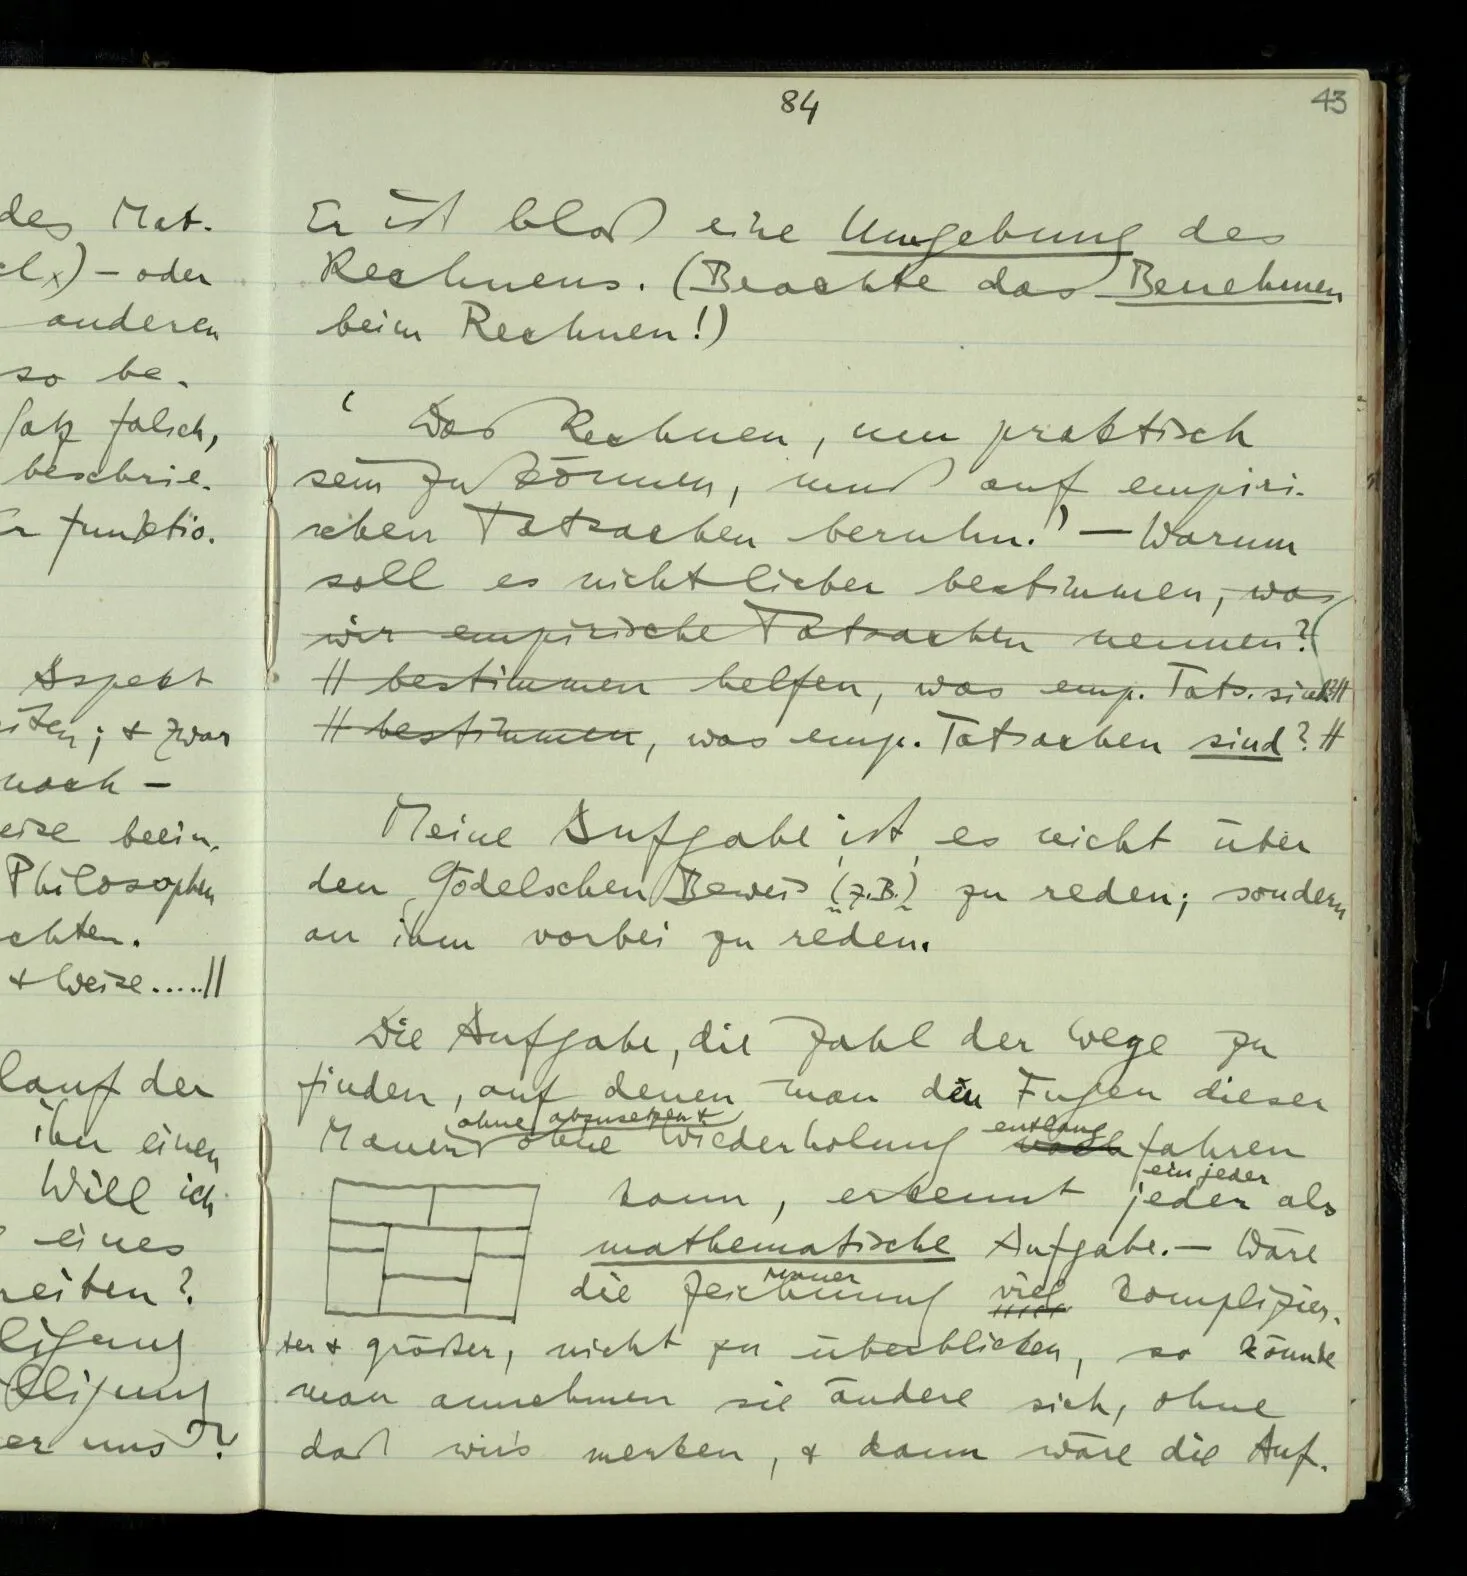 84
43
des Mat.
) – oder
anderen
so be-
Satz falsch,
beschrie-
funktio-
Aspekt
; & zwar
noch –
beein-
Philosophen
chten.
& Weise.....||
lauf der
ihn einen
Will ich
eines
reiten?
er uns ?
Er ist bloß eine Umgebung des
Rechnens. (Beachte das Benehmen
beim Rechnen!)
‘Das Rechnen, um praktisch
sein zu können, muß auf empiri-
schen Tatsachen beruhn.’ – Warum
soll es nicht lieber bestimmen, was
wir empirische Tatsachen nennen?
|| bestimmen helfen, was emp. Tats. sind?||
|| bestimmen, was emp. Tatsachen sind? ||
Meine Aufgabe ist es nicht über
den Gödelschen Beweis (z.B.) zu reden; sondern
an ihm vorbei zu reden.
Die Aufgabe, die Zahl der Wege zu
finden, auf denen man den Fugen dieser
ohne abzusetzen &
entlang
Mauer ohne Wiederholung nach fahren
ein jeder
kann, erkennt jeder als
mathematische Aufgabe. – Wäre
Mauer
die Zeichnung viel komplizier-
ter & größer, nicht zu überblicken, so könnte
man annehmen sie ändere sich, ohne
daß wir's merken, & dann wäre die Auf-